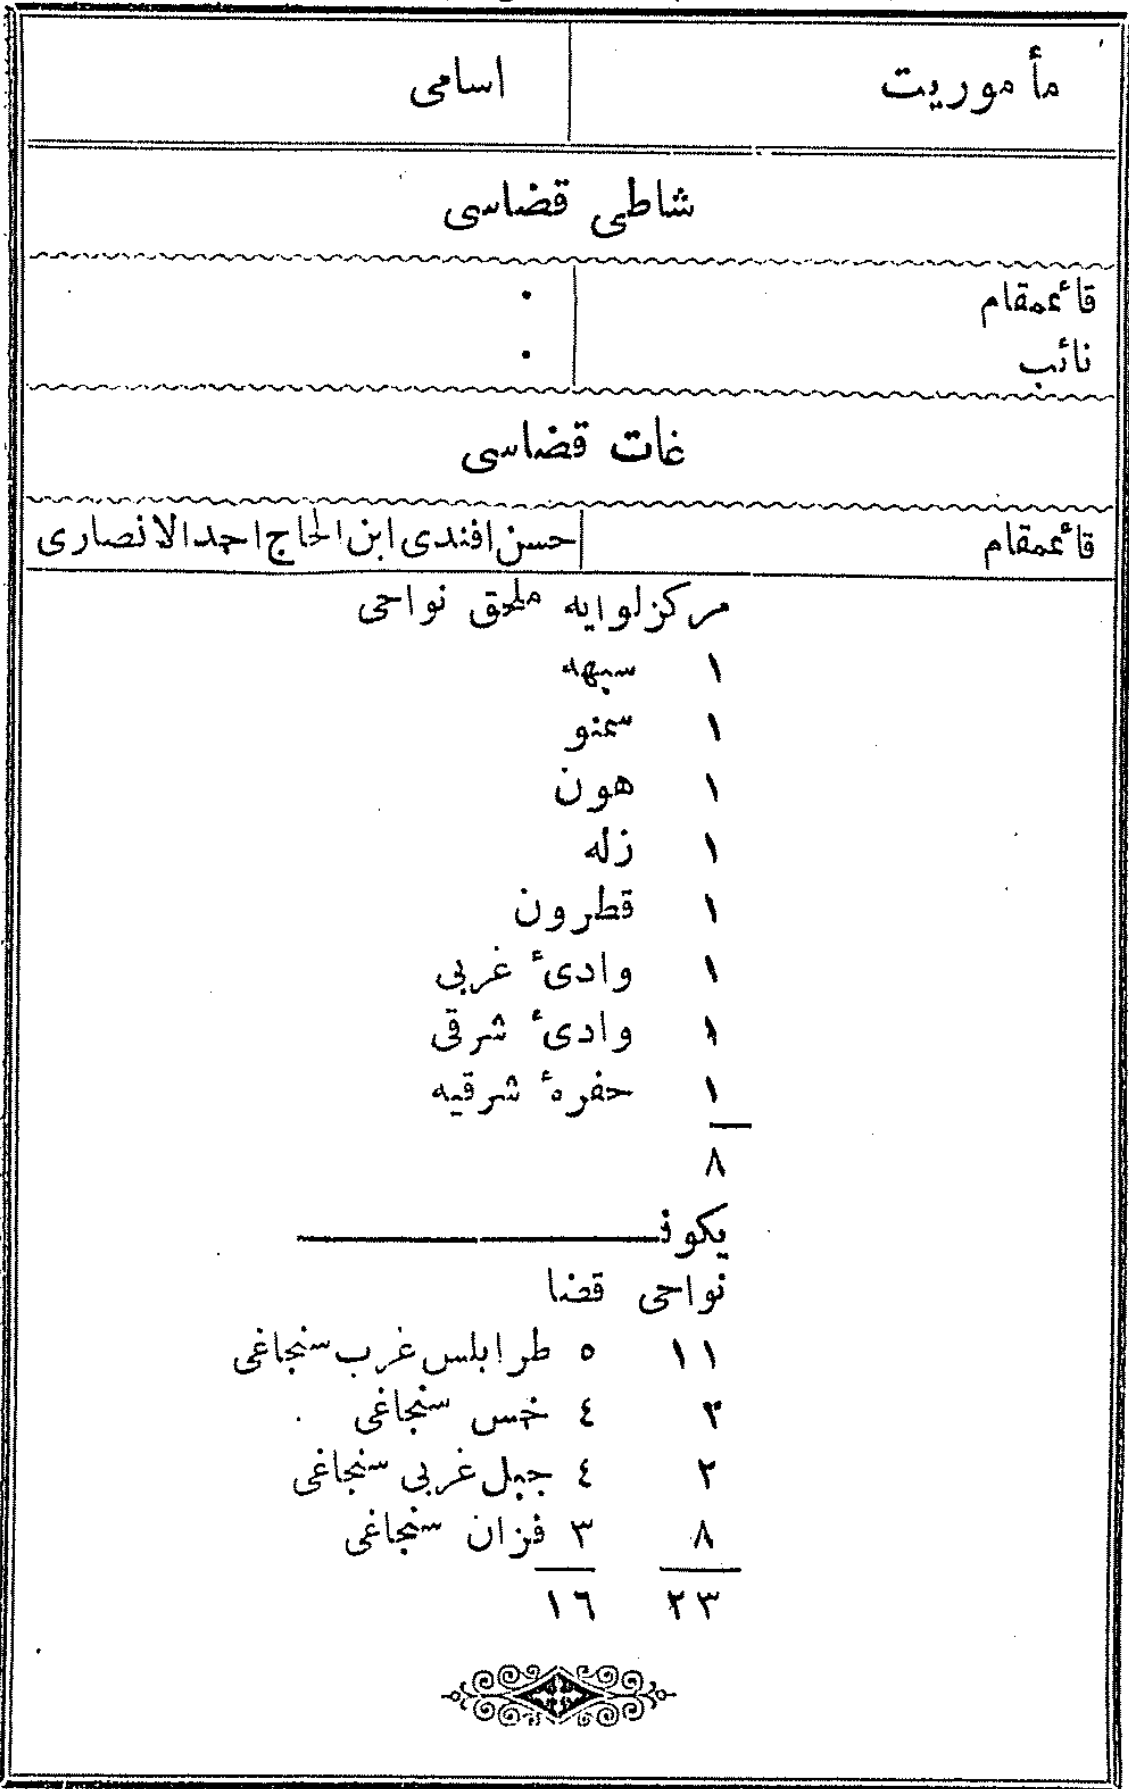 مأموريت اسامى
شاطى قضاسى
قائممقام ٠
نائب ٠
غات قضاسى
قائممقام حسن افندى ابن الحاج احمد الانصارى
مركز لوايه ملحق نواحى
١ سبهه
١ سمنو
١ هون
١ زله
١ قطرون
١ وادىٔ غربى
١ وادىٔ شرقى
١ حفرهٔ شرقيه
٨
يكون
نواحى قضا
١١ ٥ طرابلس غرب سنجاغى
٢ ٤ خمس سنجاغى
٢ ٤ جبل غربى سنجاغى
٨ ٣ فزان سنجاغى
٢٣ ١٦